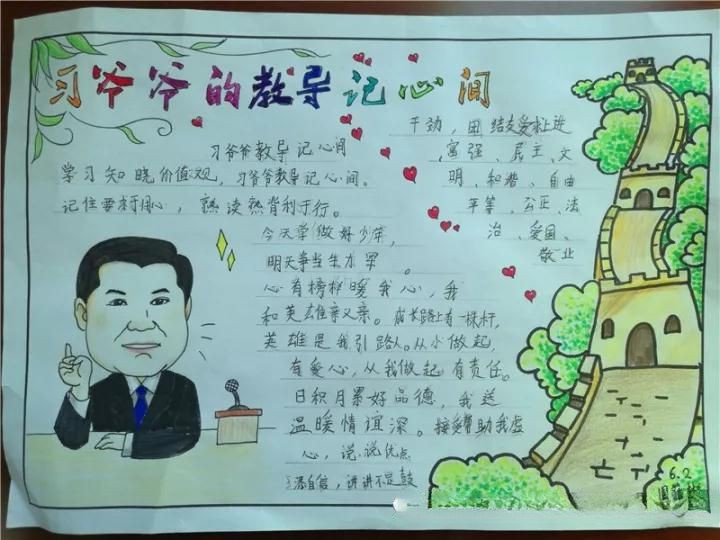 习爷爷的教导记心间
习爷爷教导记心间
学习知晓价值观，习爷爷教导记心间。
记住要求用心，熟读熟背利于行。
今天学做好少年，
明天争当生力军。
心有榜样暖我心，我
和英雄亲又亲。成长路上有一标杆，
英雄是我引路人。从小做起，
有爱心，从我做起有责任。
日积月累好品德，我送
温暖情谊深。接受帮助我虚
心，说说优点
添自信，讲讲不足鼓
干劲，团结友爱求上进
富强、民主、文
明、和谐、自由
平等、公正、法
治、爱国、
敬业
6.2